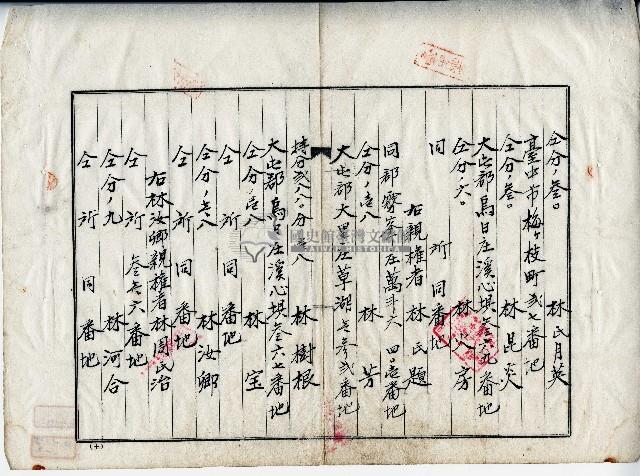 仝分ノ叁。 林氏月英
臺中市梅ヶ枝町弍七番地
仝分ノ叁。 林昆炎
大屯郡烏日庄溪心垻叁六九番地
仝分ノ六。 林火房
同所同番地
右親權者 林氏題
同郡霧峯庄萬斗六四〇壱番地
仝分ノ壱八 林芳
大屯郡大里庄草湖七参弍番地
持分弍八八分ノ壱八 林樹根
大屯郡烏日庄溪心垻叁六七番地
仝分ノ壱八 林宝
仝所同番地
仝分ノ壱八 林汝卿
仝所同番地
右林汝卿親權者林周氏治
仝所叁七六番地
仝分ノ九 林河合
仝所同番地
國史館臺灣文獻館
(十)